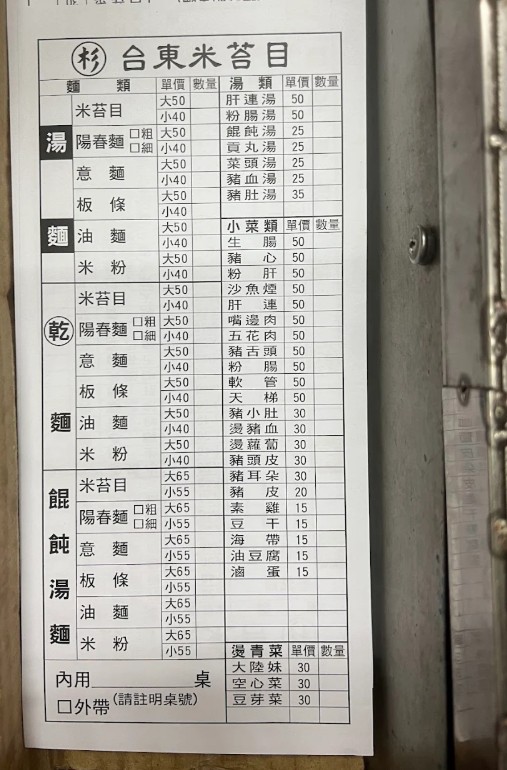 杉 台東米苔目
麵類 單價 數量
湯麵
米苔目 大50 小40
陽春麵 □粗 □細 大50 小40
意麵 大50 小40
板條 大50 小40
油麵 大50 小40
米粉 大50 小40
乾麵
米苔目 大50 小40
陽春麵 □粗 □細 大50 小40
意麵 大50 小40
板條 大50 小40
油麵 大50 小40
米粉 大50 小40
餛飩湯麵
米苔目 大65 小55
陽春麵 □粗 □細 大65 小55
意麵 大65 小55
板條 大65 小55
油麵 大65 小55
米粉 大65 小55
內用 桌
(請註明桌號)
□外帶
湯類 單價 數量
肝連湯 50
粉腸湯 50
餛飩湯 25
貢丸湯 25
菜頭湯 25
豬血湯 25
豬肚湯 35
小菜類 單價 數量
生腸 50
豬心 50
粉肝 50
沙魚煙 50
肝連 50
嘴邊肉 50
五花肉 50
豬舌頭 50
粉腸 50
軟管 50
天梯 50
豬小肚 30
燙豬血 30
燙蘿蔔 30
豬頭皮 30
豬耳朵 30
豬皮 20
素雞 15
豆干 15
海帶 15
油豆腐 15
滷蛋 15
燙青菜 單價 數量
大陸妹 30
空心菜 30
豆芽菜 30